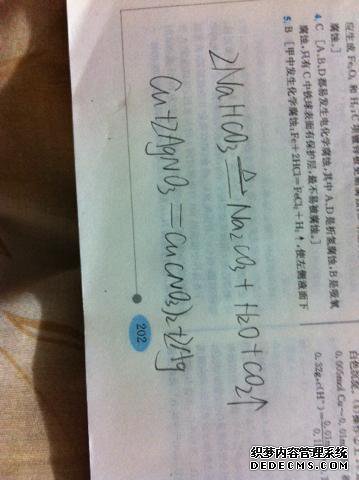 应生成 FeO, 和 H
腐蚀。]
4. C [A、B、D 都易发生电化学腐蚀,其中 A、D 是析氢腐蚀,B 是吸氧
腐蚀,只有 C 中铁球表面有保护层,最不易被腐蚀。]
5. B [甲中发生化学腐蚀:Fe+2HCl=FeCl₂+H₂↑,使左侧液面下
2NaHCO₃ ≜ Na₂CO₃+H₂O+CO₂↑
Cu+2AgNO₃=Cu(NO₃)₂+2Ag
202
白色
0.005mol Cu~0.01m
0.32g,c(H⁺)=
织梦内容管理系统
DEDECMS.COM